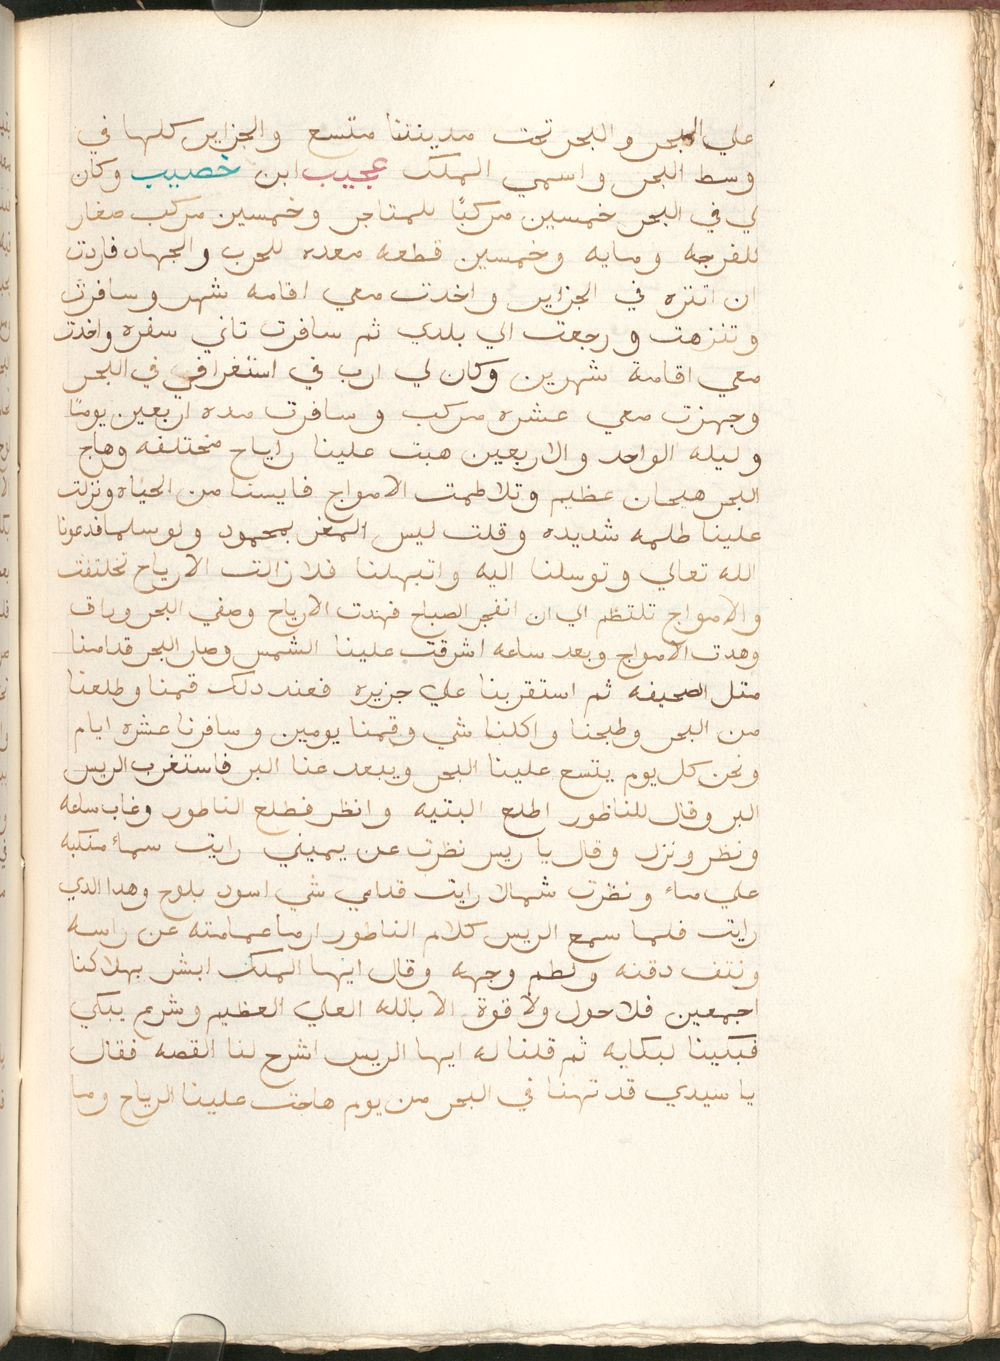 علي البحر والبحر تحت مدينتنا متسع والجزاير كلها في
وسط البحر واسمي الملك عجيب ابن خصيب وكان
لي في البحر خمسين مركبًا للمتاجر وخمسين مركب صغار
للفرجه ومايه وخمسين قطعه معده للحرب والجهاد فاردت
ان اتنزه في الجزاير واخدت معي اقامه شهر وسافرت
وتنزهت ورجعت الي بلدي ثم سافرت تاني سفره واخدت
معي اقامة شهرين وكان لي ارب في استغراقي في البحر
وجهزت معي عشره مركب وسافرت مده اربعين يومًا
وليله الواحد والاربعين هبت علينا راياح مختلفه وهاج
البحر هيجان عظيم وتلاطمت الامواج فايسنا من الحياه ونزلت
علينا ظلمه شديده وقلت ليس المغر بمحمود ولو سلما فدعونا
الله تعالي وتوسلنا اليه واتبهلنا فلا زالت الارياح تختلفت
والامواج تلتظم الي ان انفجر الصباح فهدت الارياح وصفي البحر وراق
وهدت الامواج وبعد ساعه اشرقت علينا الشمس وصار البحر قدامنا
متل الصحيفه ثم استقربنا علي جزيره فعند دلك قمنا وطلعنا
من البحر وطبخنا واكلنا شي وقمنا يومين وسافرنا عشره ايام
ونحن كل يوم يتسع علينا البحر ويبعد عنا البر فاستغرب الريس
البر وقال للناظور اطلع البتيه وانظر فطلع الناطور وغاب ساعه
ونظر ونزل وقال يا ريس نظرت عن يميني رايت سماء منكبه
علي ماء ونظرت شمالا رايت قدامي شي اسود يلوح وهدا الدي
رايت فلما سمع الريس كلام الناطور ارما عمامته عن راسه
ونتف دقنه ولطم وجهه وقال ايها الملك ابشر بهلاكنا
اجمعين فلا حول ولا قوة الا بالله العلي العظيم وشرع يبكي
فبكينا لبكايه ثم قلنا له ايها الريس اشرح لنا القصه فقال
يا سيدي قد تهنا في البحر من يوم هاجت علينا الرياح وما